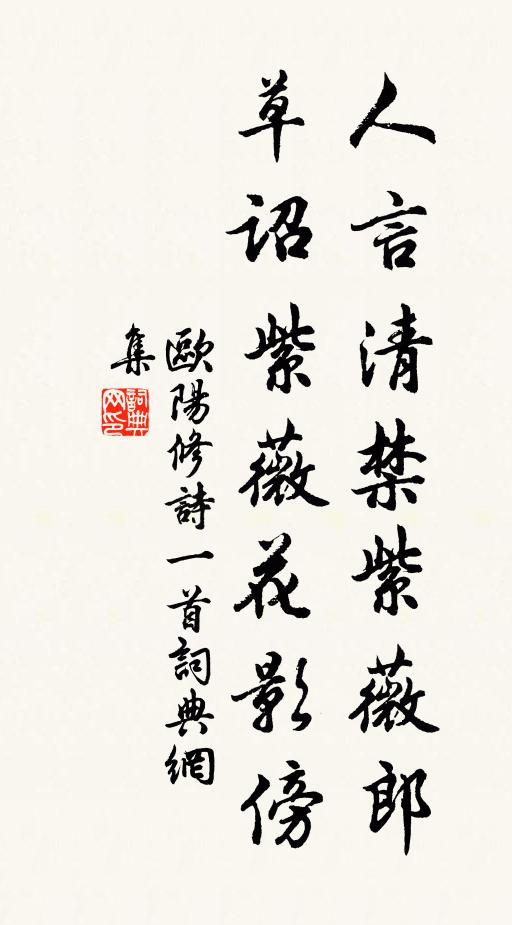 人言清禁紫薇郎
草詔紫薇花影傍
歐陽修詩一首詞典網
集
詞典
网印